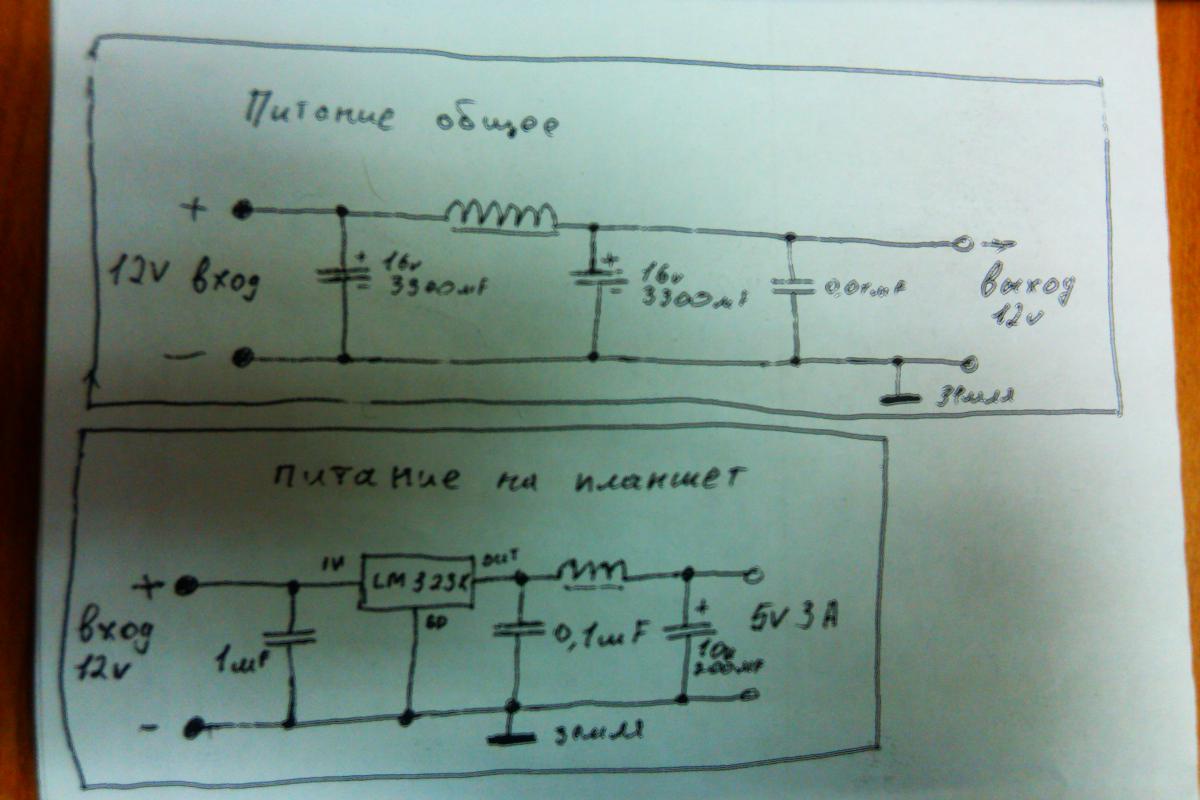 Питание общее
+
12V вход
—
+
-
16v
3300мF
+
-
16v
3300мF
0,01мF
выход
12v
Земля
питание на планшет
+
вход
12v
-
1мF
IN
LM 323K
OUT
GD
0,1мF
+
10v
200мF
5V 3A
земля